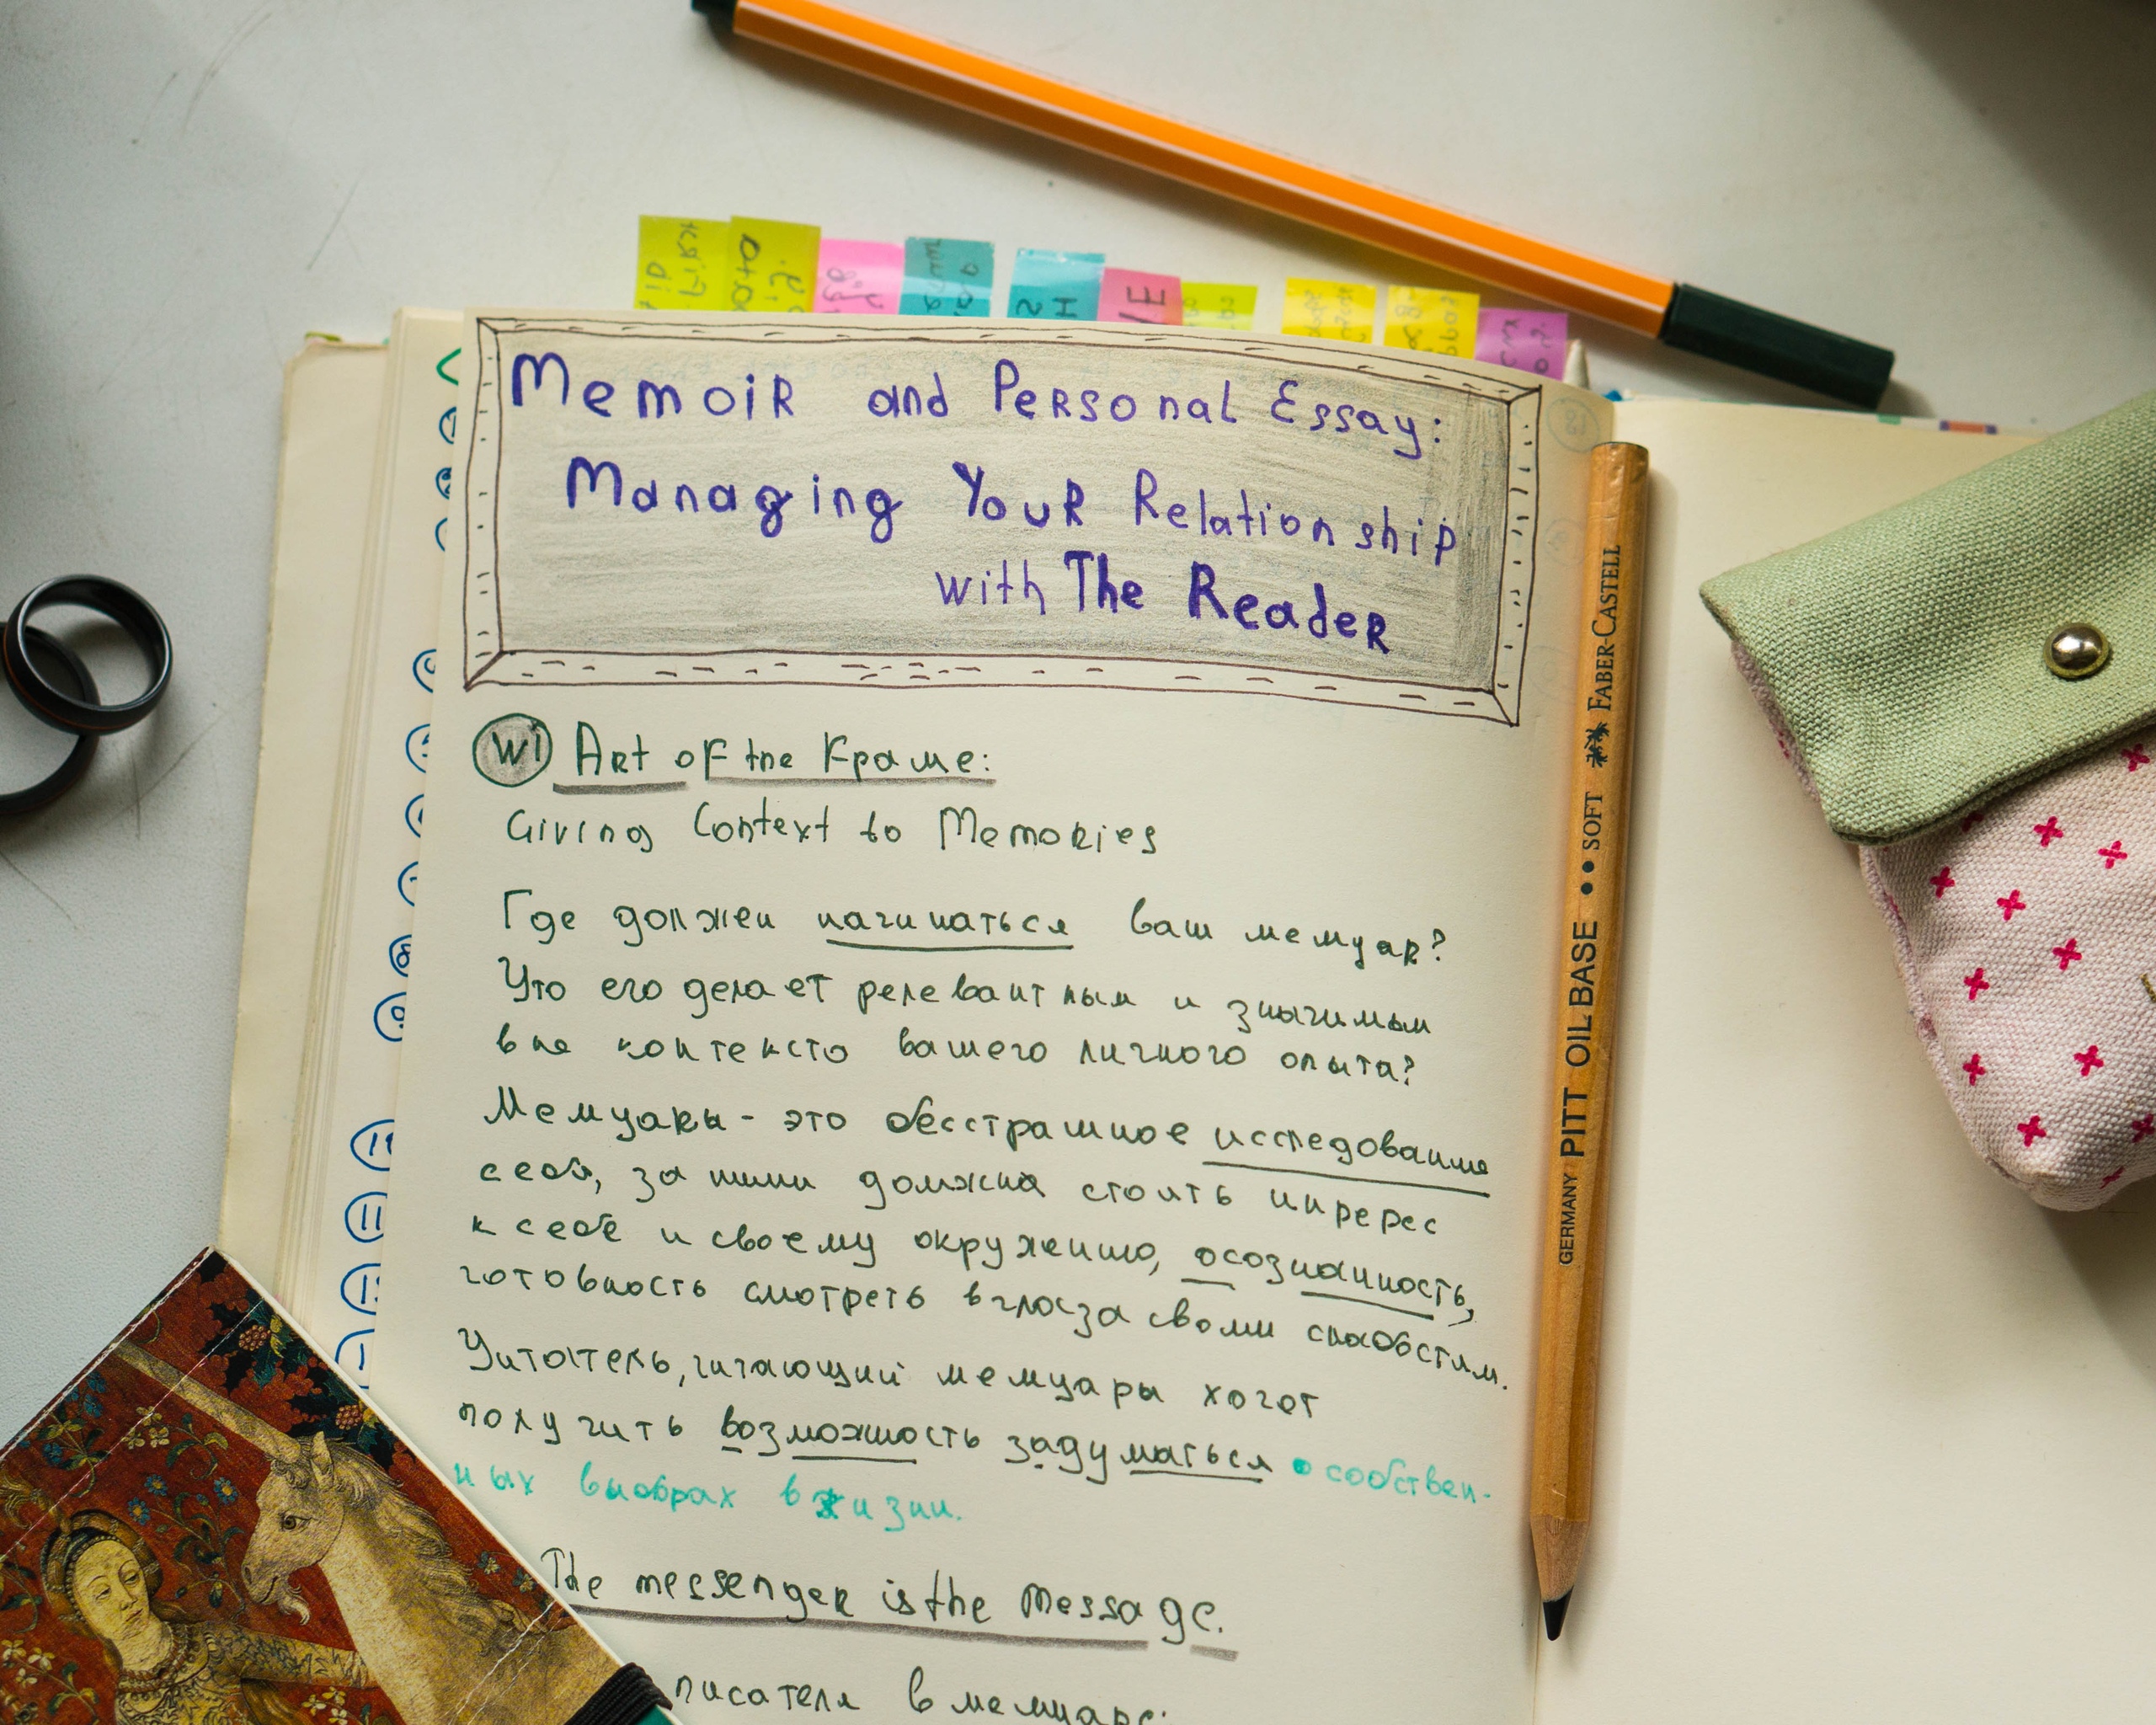 Memoir and Personal Essay:
Managing Your Relationship
with The Reader
W1 Art of the Frame:
Giving Context to Memories
Где должен начинаться ваш мемуар?
Что его делает релевантным и значимым
вне контекста вашего личного опыта?
Мемуары - это бесстрашное исследование
себя, за ними должна стоять инререс
к себе и своему окружению, осознанность,
готовность смотреть в глаза своим слабостям.
Читатель, читающий мемуары хочет
получить возможность задуматься о собствен-
ных выборах в жизни.
The messenger is the message.
писателя в мемуаре:
FABER-CASTELL
SOFT
PITT OIL BASE
GERMANY